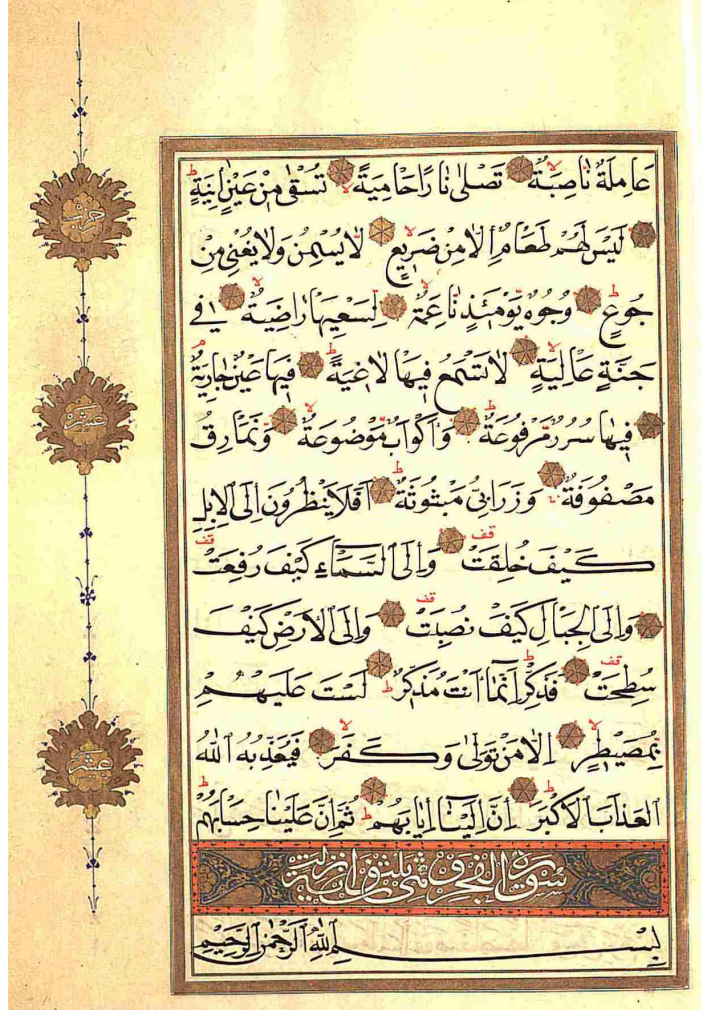 عَامِلَةٌ نَاصِبَةٌ تَصْلٰى نَارًا حَامِيَةً تُسْقٰى مِنْ عَيْنٍ اٰنِيَةٍ
لَيْسَ لَهُمْ طَعَامٌ اِلَّا مِنْ ضَرِيعٍ لَا يُسْمِنُ وَلَا يُغْنِي مِنْ
جُوعٍ وُجُوهٌ يَوْمَئِذٍ نَاعِمَةٌ لِسَعْيِهَا رَاضِيَةٌ فِي
جَنَّةٍ عَالِيَةٍ لَا تَسْمَعُ فِيهَا لَاغِيَةً فِيهَا عَيْنٌ جَارِيَةٌ
فِيهَا سُرُرٌ مَرْفُوعَةٌ وَاَكْوَابٌ مَوْضُوعَةٌ وَنَمَارِقُ
مَصْفُوفَةٌ وَزَرَابِيُّ مَبْثُوثَةٌ اَفَلَا يَنْظُرُونَ اِلَى الْاِبِلِ
كَيْفَ خُلِقَتْ وَاِلَى السَّمَاءِ كَيْفَ رُفِعَتْ
وَاِلَى الْجِبَالِ كَيْفَ نُصِبَتْ وَاِلَى الْاَرْضِ كَيْفَ
سُطِحَتْ فَذَكِّرْ اِنَّمَا اَنْتَ مُذَكِّرٌ لَسْتَ عَلَيْهِمْ
بِمُصَيْطِرٍ اِلَّا مَنْ تَوَلّٰى وَكَفَرَ فَيُعَذِّبُهُ اللّٰهُ
الْعَذَابَ الْاَكْبَرَ اِنَّ اِلَيْنَا اِيَابَهُمْ ثُمَّ اِنَّ عَلَيْنَا حِسَابَهُمْ
سورة الفجر وهي ثلثون اية
بِسْمِ اللّٰهِ الرَّحْمٰنِ الرَّحِيمِ
حزب
عشره
عشر